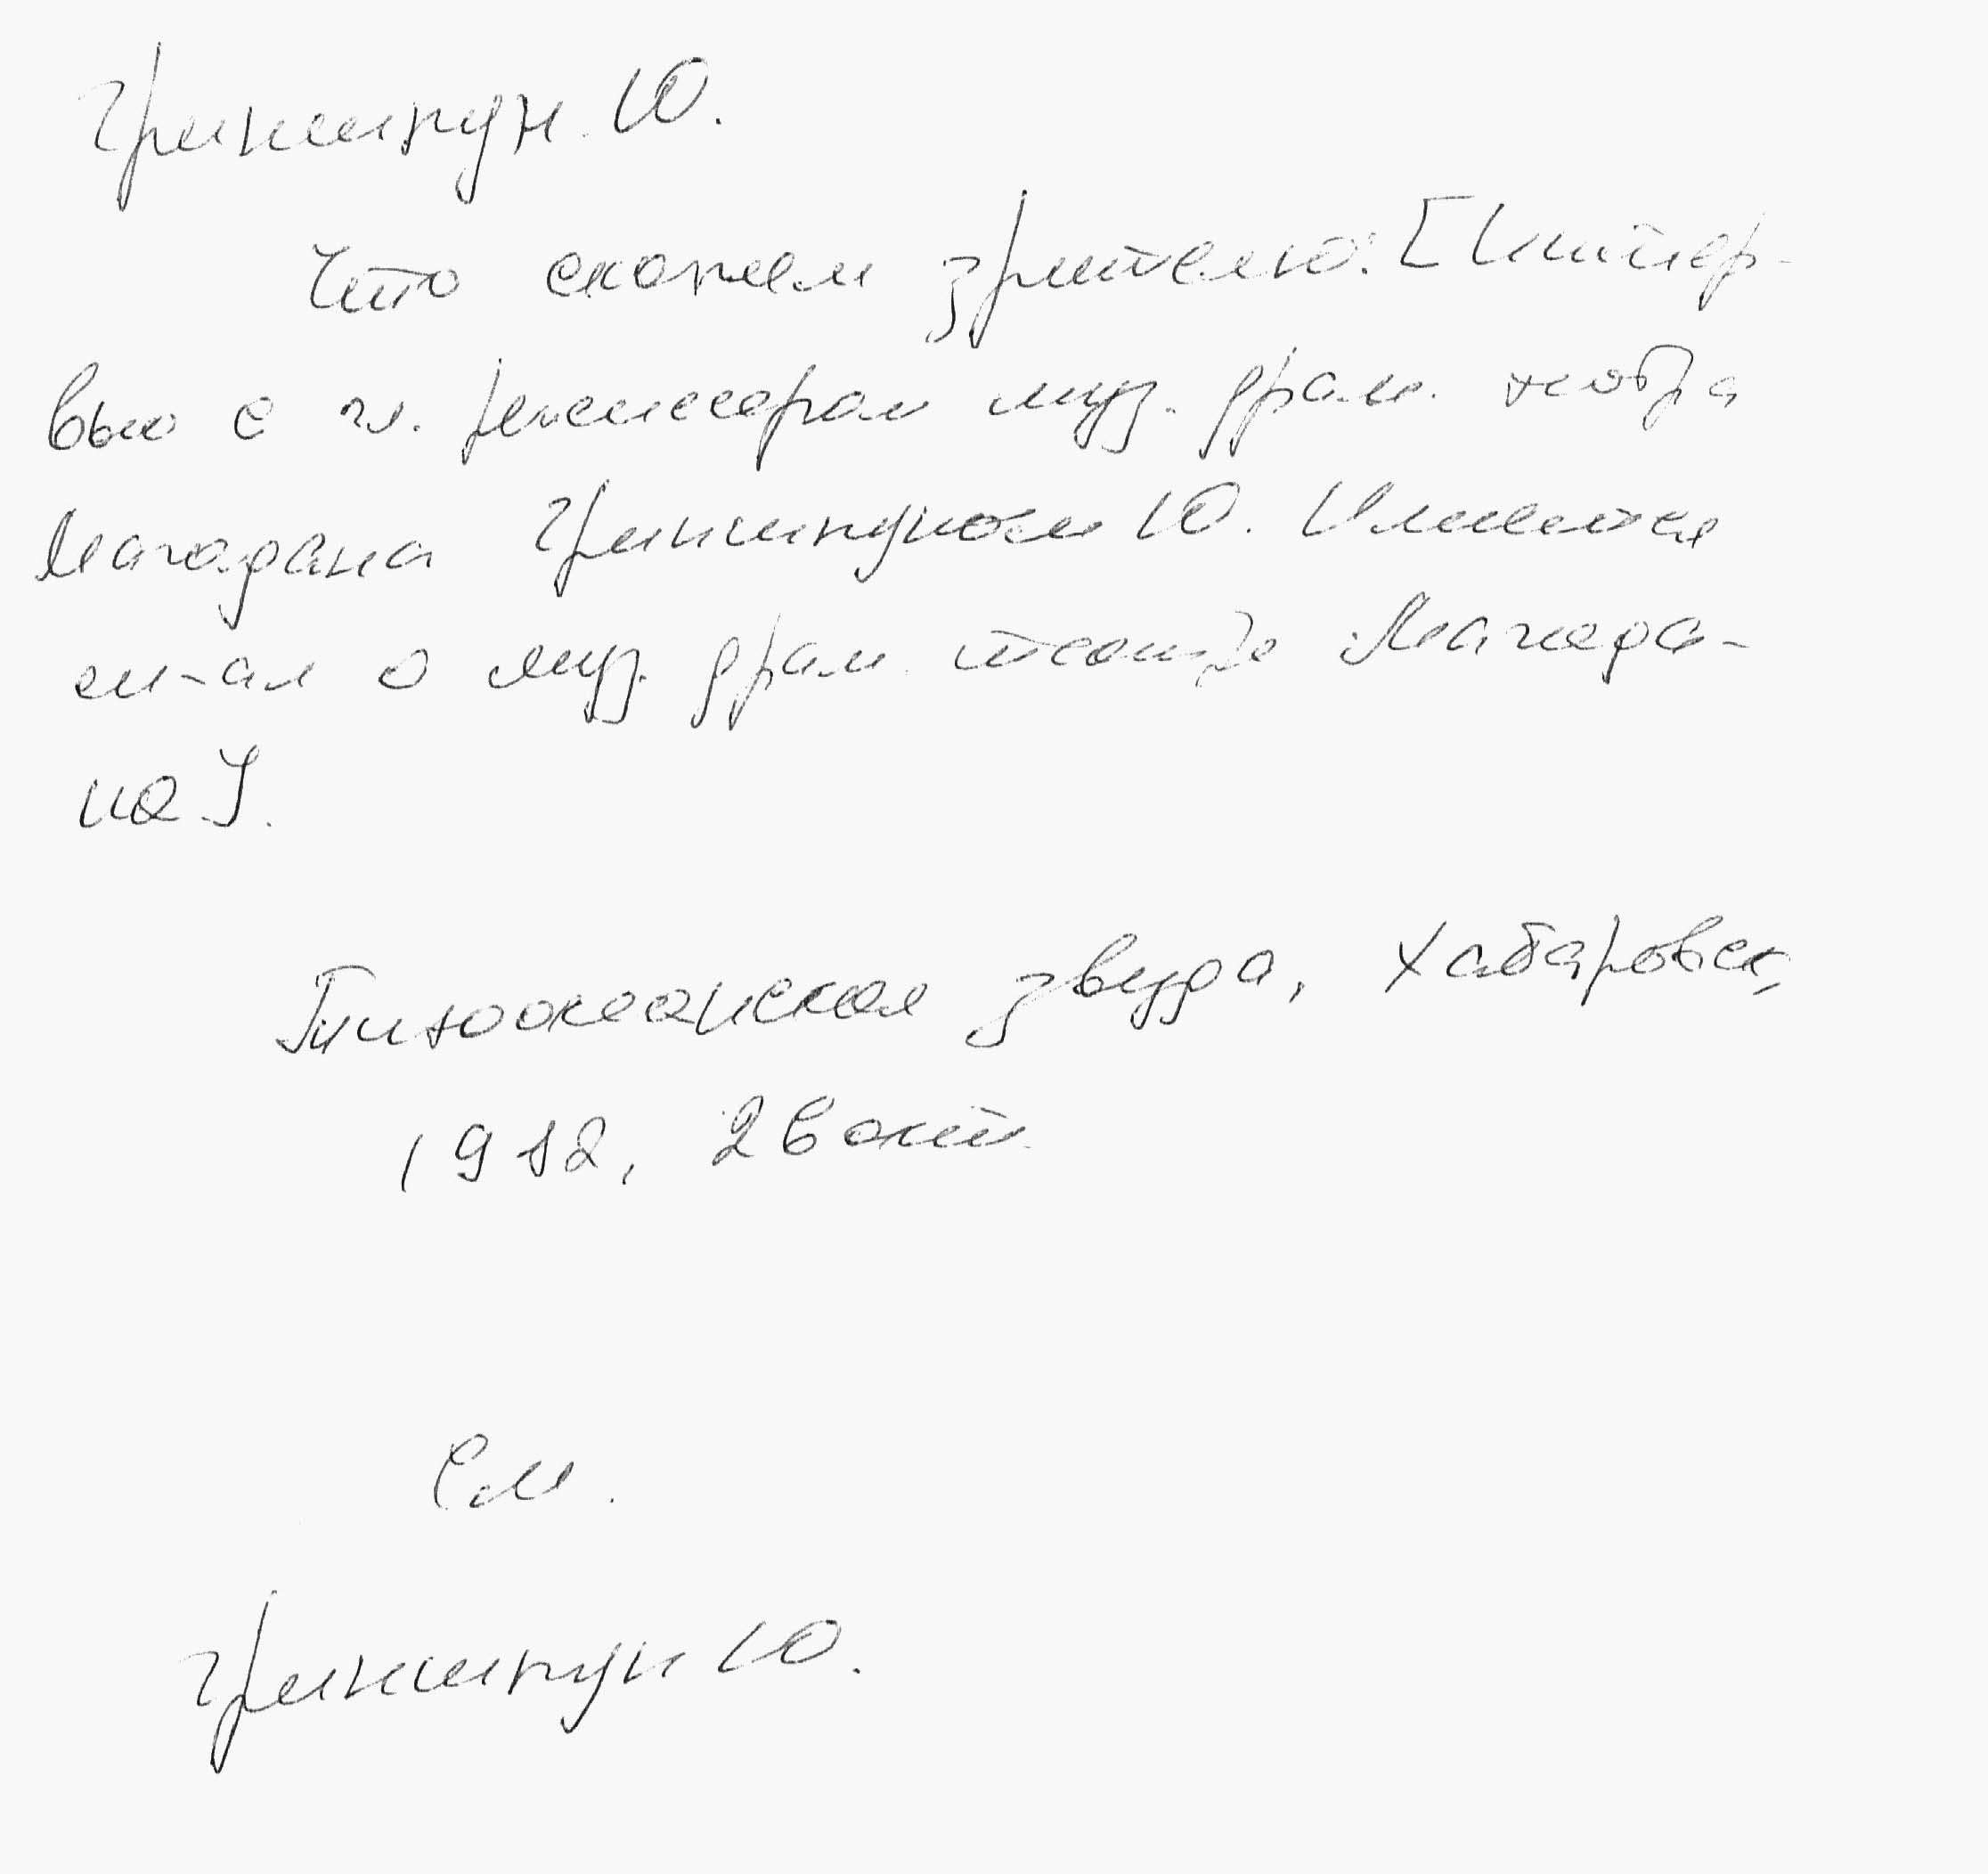 Гриншпун Ю.
Что скажем зрителю: [Интер-
вью с гл. режиссером муз. драм. театра
Магадана Гриншпуном Ю. Имеется
м-ал о муз. драм. театре Магада-
на].
Тихоокеанская звезда, Хабаровск,
1982, 26 окт.
См.
Гриншпун Ю.